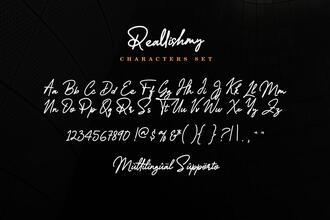 Reallishmy
CHARACTERS SET
Aa Bb Cc Dd Ee Ff Gg Hh Ii Jj Kk Ll Mm
Nn Oo Pp Qq Rr Ss Tt Uu Vv Ww Xx Yy Zz
1234567890 !@ $ % &*( ){ } ?/ | . , " "
Mültilingüal Süppörto